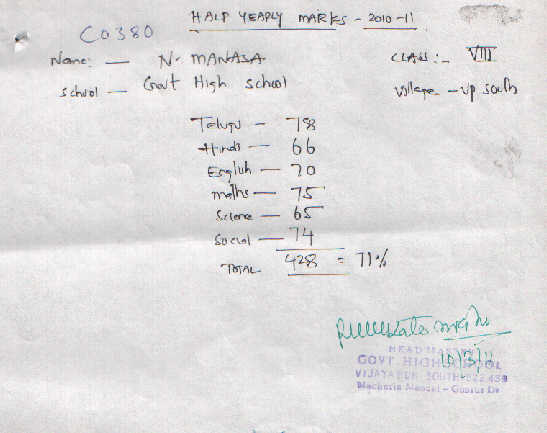 HALF YEARLY MARKS - 2010-11
C0380
Name: — N. MANASA CLASS:- VIII
School — Govt High School Village - VP South
Telugu — 78
Hindi — 66
English — 70
maths — 75
Science — 65
Social — 74
TOTAL 428 = 71%
HEAD MASTER
GOVT. HIGH SCHOOL
VIJAYAPURI SOUTH-522 439
Macherla Mandal - Guntur Dt